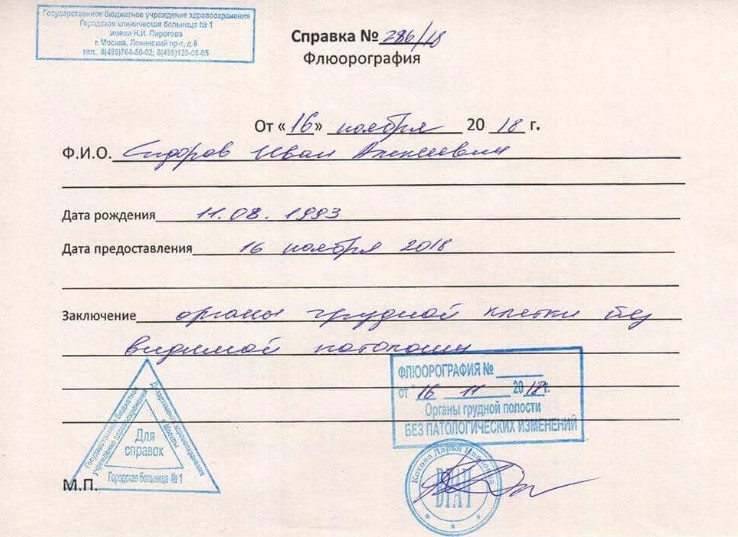 Государственное бюджетное учреждение здравоохранения
Городская клиническая больница № 1
имени Н.И. Пирогова
г. Москва, Ленинский пр-т, д.8
тел. 8(499)764-50-02; 8(495)120-05-05
Справка № 286/18
Флюорография
От «16» ноября 2018 г.
Ф.И.О. Сидоров Иван Алексеевич
Дата рождения 11.08.1993
Дата предоставления 16 ноября 2018
Заключение органы грудной клетки без
видимой патологии
ФЛЮОРОГРАФИЯ №
от "16 11 2018г.
Органы грудной полости
БЕЗ ПАТОЛОГИЧЕСКИХ ИЗМЕНЕНИЙ
Государственное бюджетное
учреждение здравоохранения
Департамент здравоохранения
г. Москвы
Для
справок
Городская больница № 1
М.П.
Котова Дарья
ВРАЧ